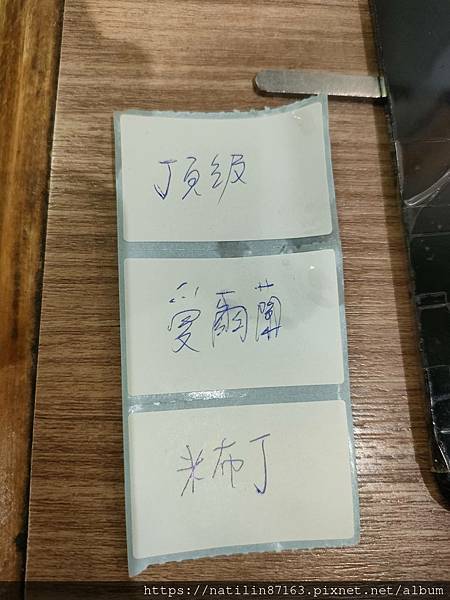 頂級
愛爾蘭
米布丁
https://natilin87163.pixnet.net/album